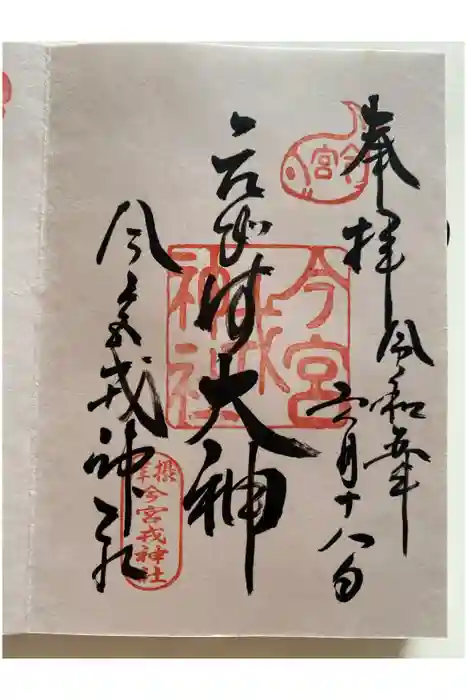 奉拝
令和五年
六月十八日
今宮
大神
今宮戎神社
今宮戎神社
今宮戎神社